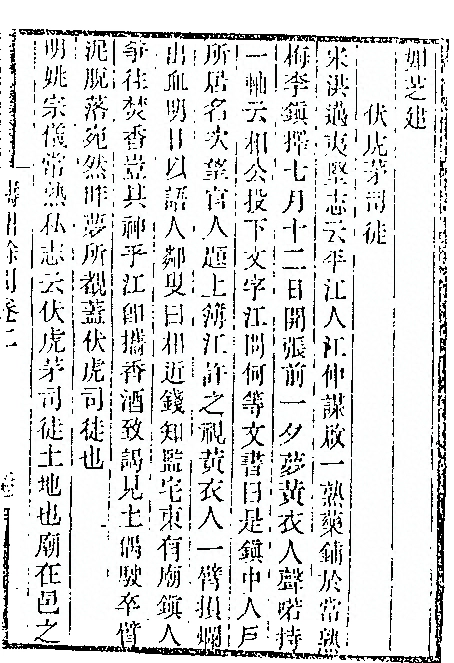 如芝建
伏虎茅司徒
宋洪邁夷堅志云平江人江仲謀啟一熟藥鋪於常熟
梅李鎮擇七月十二日開張前一夕夢黃衣人聲喏持
一軸云相公投下文字江問何等文書曰是鎮中人戶
所居名次望官人題上簿江許之視黃衣人一臂損爛
出血明日以語人鄰叟曰相近錢知監宅東有廟鎮人
爭往焚香豈其神乎江卽攜香酒致謁見土偶駛卒臂
泥脫落宛然昨夢所覩蓋伏虎司徒也
明姚宗儀常熟私志云伏虎茅司徒土地也廟在邑之
餘 卷二